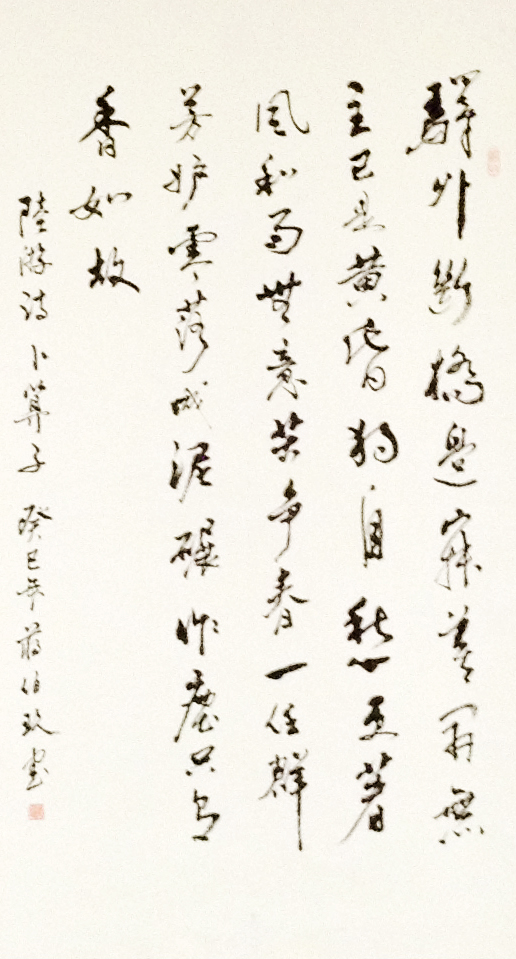 驛外断橋邊寂莫開無
主已是黄昏獨自愁更著
風和雨無意苦争春一任群
芳妒零落成泥碾作塵只有
香如故
陸游詩卜算子 癸巳年蔣伯玖書